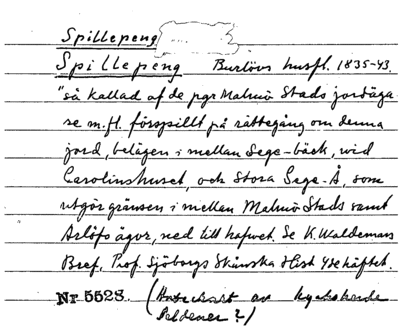 Spillepeng
Spillepeng Burlövs husfl. 1835-43.
"så kallad af de pgr Malmö Stads jordäga-
re m.fl. förspillt på rättegång om denna
jord, belägen i mellan Sege-bäck, wid
Carolinshuset, och Stora Sege-Å, som
utgör gränsen i mellan Malmö Stads samt
Arlöfs ägor, ned till hafwet. Se K. Waldemars
Bref, Prof. Sjöborgs Skånska Hist 4de häftet.
Nr 5528. ( av
?)